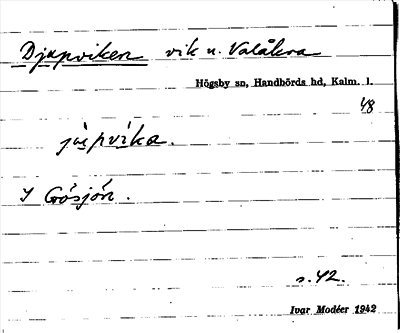 Djupviken vik u. Valåkra
Högsby sn, Handbörds hd, Kalm. l.
48
jùpvìka.
I Gösjön.
s. 42.
Ivar Modéer 1942